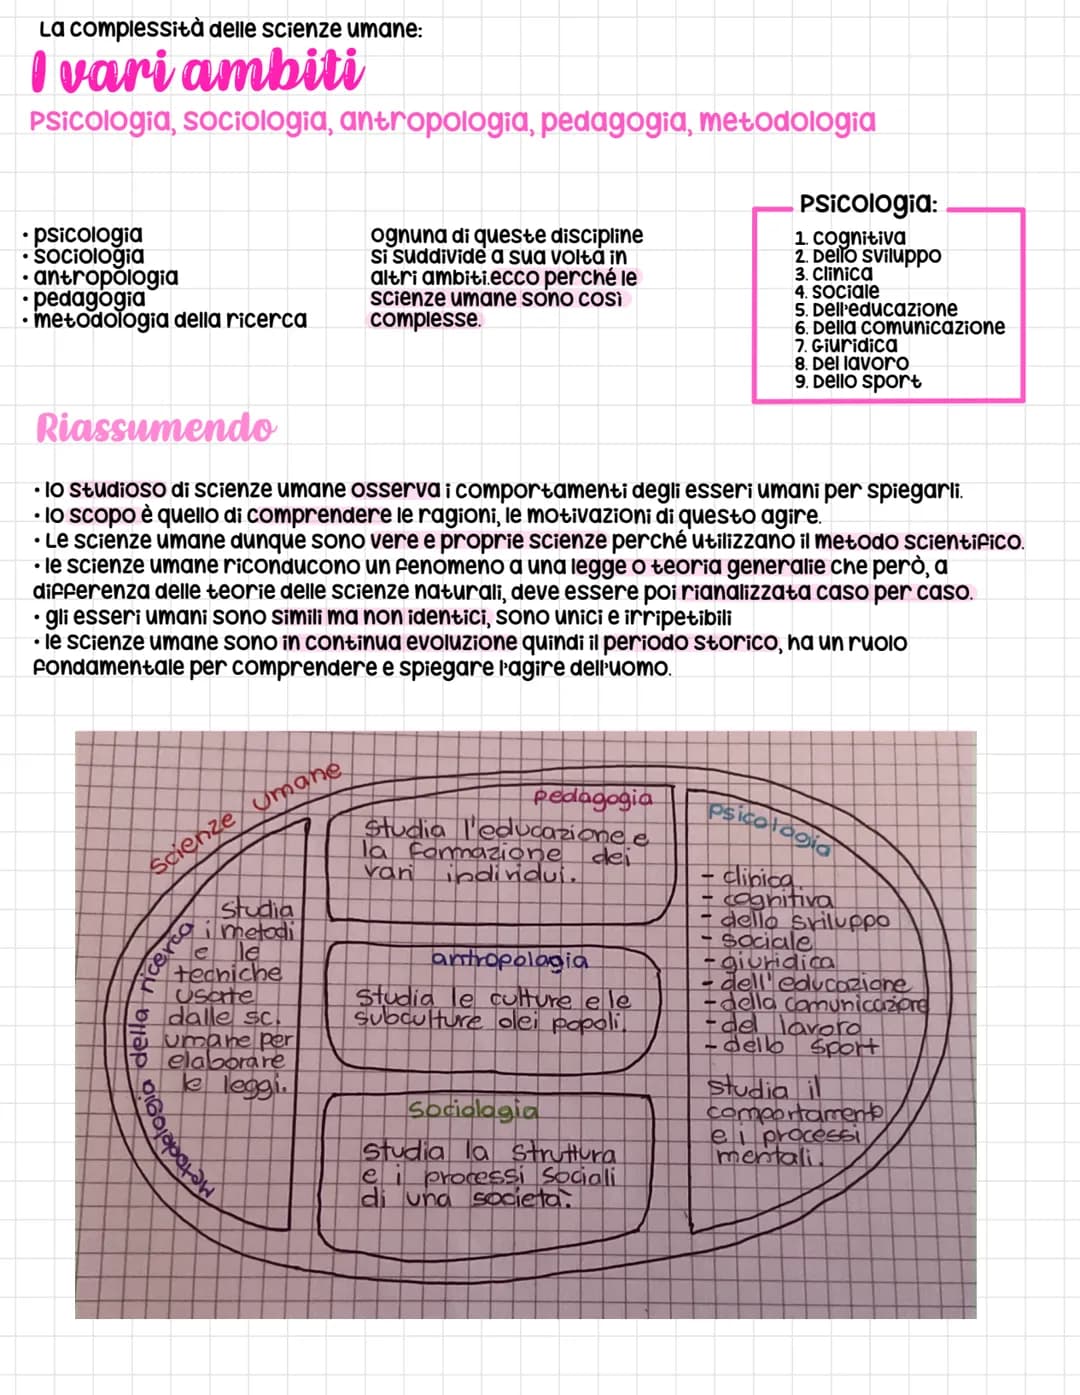 La complessità delle scienze umane:
I vari ambiti
Psicologia, sociologia, antropologia, pedagogia, metodologia
• psicologia
• sociologia
• antropologia
• pedagogia
• metodologia della ricerca
ognuna di queste discipline
si suddivide a sua volta in
altri ambiti.ecco perché le
scienze umane sono così
complesse.
Psicologia:
1. cognitiva
2. Dello sviluppo
3. clinica
4. sociale
5. Dell'educazione
6. Della comunicazione
7. Giuridica
8. Del lavoro
9. Dello sport
Riassumendo
• lo studioso di scienze umane osserva i comportamenti degli esseri umani per spiegarli.
• lo scopo è quello di comprendere le ragioni, le motivazioni di questo agire.
• Le scienze umane dunque sono vere e proprie scienze perché utilizzano il metodo scientifico.
• le scienze umane riconducono un fenomeno a una legge o teoria generalie che però, a
differenza delle teorie delle scienze naturali, deve essere poi rianalizzata caso per caso.
• gli esseri umani sono simili ma non identici, sono unici e irripetibili
• le scienze umane sono in continua evoluzione quindi il periodo storico, ha un ruolo
fondamentale per comprendere e spiegare l'agire dell'uomo.
Scienze umane
Metodologia della ricerca
Studia
i metodi
e le
tecniche
usate
dalle sc.
umane per
elaborare
le leggi.
pedagogia
Studia l'educazione e
la formazione dei
vari individui.
antropologia
Studia le culture e le
subculture dei popoli.
Sociologia
Studia la struttura
e i processi sociali
di una società.
Psicologia
- clinica
- cognitiva
- dello sviluppo
- sociale
- giuridica
- dell'educazione
- della comunicazione
- del lavoro
- dello sport
Studia il
comportamento
e i processi
mentali.